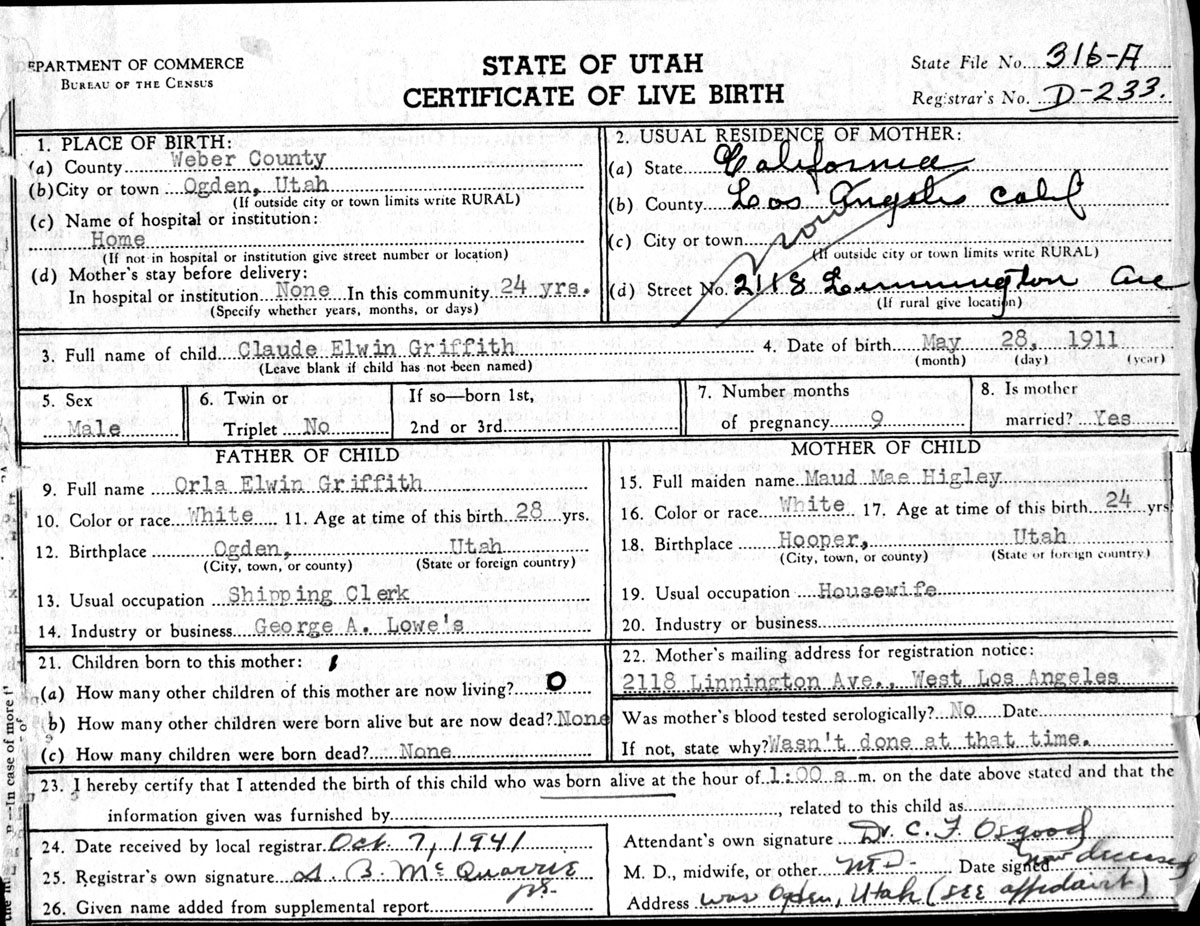 DEPARTMENT OF COMMERCE
BUREAU OF THE CENSUS
STATE OF UTAH
CERTIFICATE OF LIVE BIRTH
State File No. 316-A
Registrar's No. D-233.
1. PLACE OF BIRTH:
(a) County Weber County
(b) City or town Ogden, Utah
(If outside city or town limits write RURAL)
(c) Name of hospital or institution:
Home
(If not in hospital or institution give street number or location)
(d) Mother's stay before delivery:
In hospital or institution None In this community 24 yrs.
(Specify whether years, months, or days)
2. USUAL RESIDENCE OF MOTHER:
(a) State California
(b) County Los Angeles Calif
(c) City or town now
(If outside city or town limits write RURAL)
(d) Street No. 2118 Ave
(If rural give location)
3. Full name of child Claude Elwin Griffith
(Leave blank if child has not been named)
4. Date of birth May 28, 1911
(month) (day) (year)
5. Sex
Male
6. Twin or
Triplet No
If so—born 1st,
2nd or 3rd
7. Number months
of pregnancy 9
8. Is mother
married? Yes
FATHER OF CHILD
9. Full name Orla Elwin Griffith
10. Color or race White 11. Age at time of this birth 28 yrs.
12. Birthplace Ogden, Utah
(City, town, or county) (State or foreign country)
13. Usual occupation Shipping Clerk
14. Industry or business George A. Lowe's
MOTHER OF CHILD
15. Full maiden name Maud Mae Higley
16. Color or race White 17. Age at time of this birth 24 yrs
18. Birthplace Hooper, Utah
(City, town, or county) (State or foreign country)
19. Usual occupation Housewife
20. Industry or business
21. Children born to this mother: 1
(a) How many other children of this mother are now living? 0
(b) How many other children were born alive but are now dead? None
(c) How many children were born dead? None
22. Mother's mailing address for registration notice:
2118 Linnington Ave., West Los Angeles
Was mother's blood tested serologically? No Date
If not, state why? Wasn't done at that time.
23. I hereby certify that I attended the birth of this child who was born alive at the hour of 1:00 a m. on the date above stated and that the
information given was furnished by , related to this child as
24. Date received by local registrar Oct. 7, 1941
25. Registrar's own signature B. McQuarrie
26. Given name added from supplemental report
Attendant's own signature Dr. C. F. Osgood
M. D., midwife, or other M.D. Date signed now deceased
Address was Ogden, Utah (see affidavit)
In case of more
of